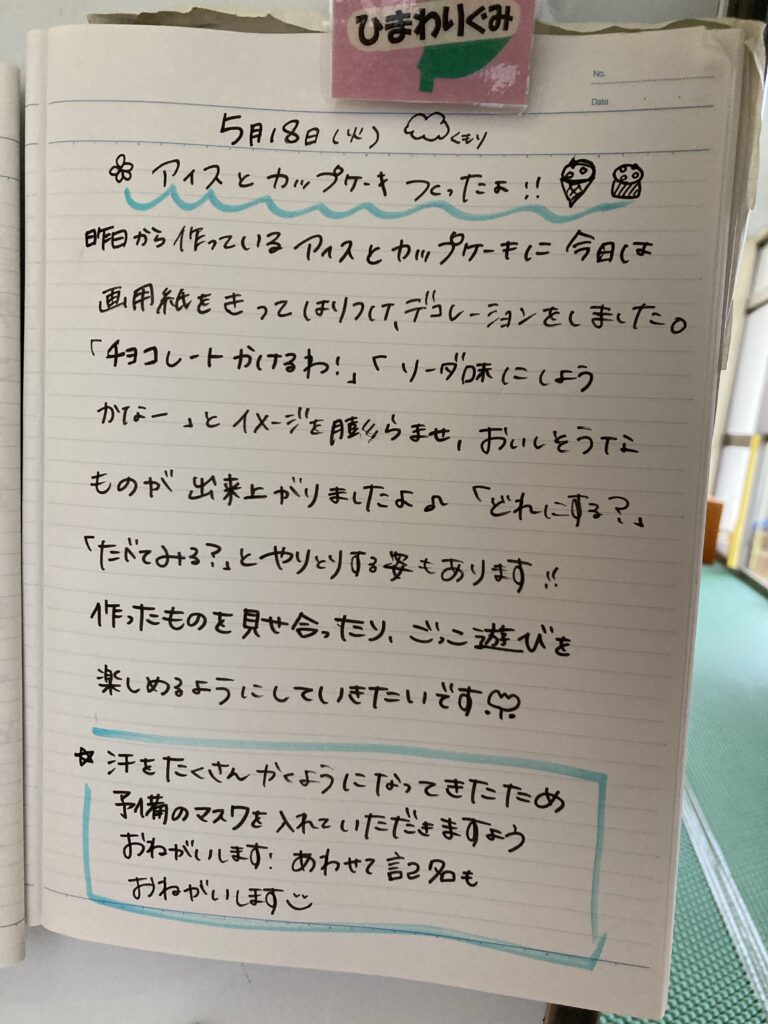 ひまわりぐみ
No.
Date
5月18日(火) くもり
アイスとカップケーキ つくったよ!!
昨日から作っている アイスとカップケーキに 今日は
画用紙をきってはりつけ、デコレーションをしました。
「チョコレートかけるわ!」「ソーダ味にしよう
かなー」とイメージを膨らませ、おいしそうな
ものが 出来上がりましたよ♪ 「どれにする?」
「たべてみる?」とやりとりする姿もあります!!
作ったものを見せ合ったり、ごっこ遊びを
楽しめるようにしていきたいです
☆ 汗をたくさんかくようになってきたため
予備のマスクを入れていただきますよう
おねがいします! あわせて記名も
おねがいします